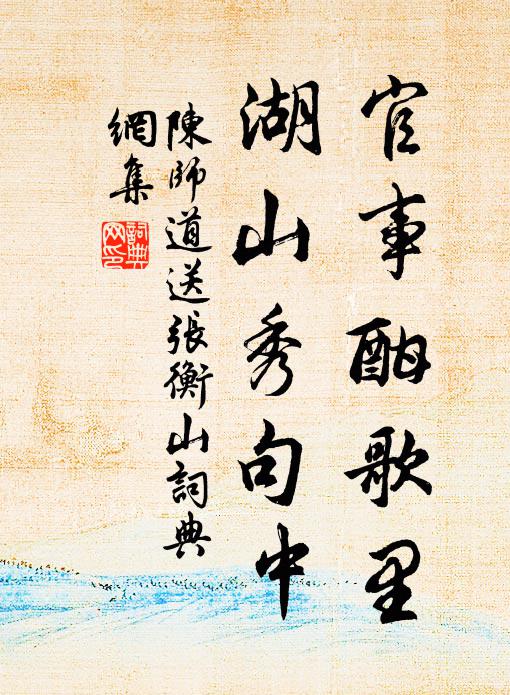 官事酣歌里
湖山秀句中
陳師道送張衡山詞典
網集
詞典
网印